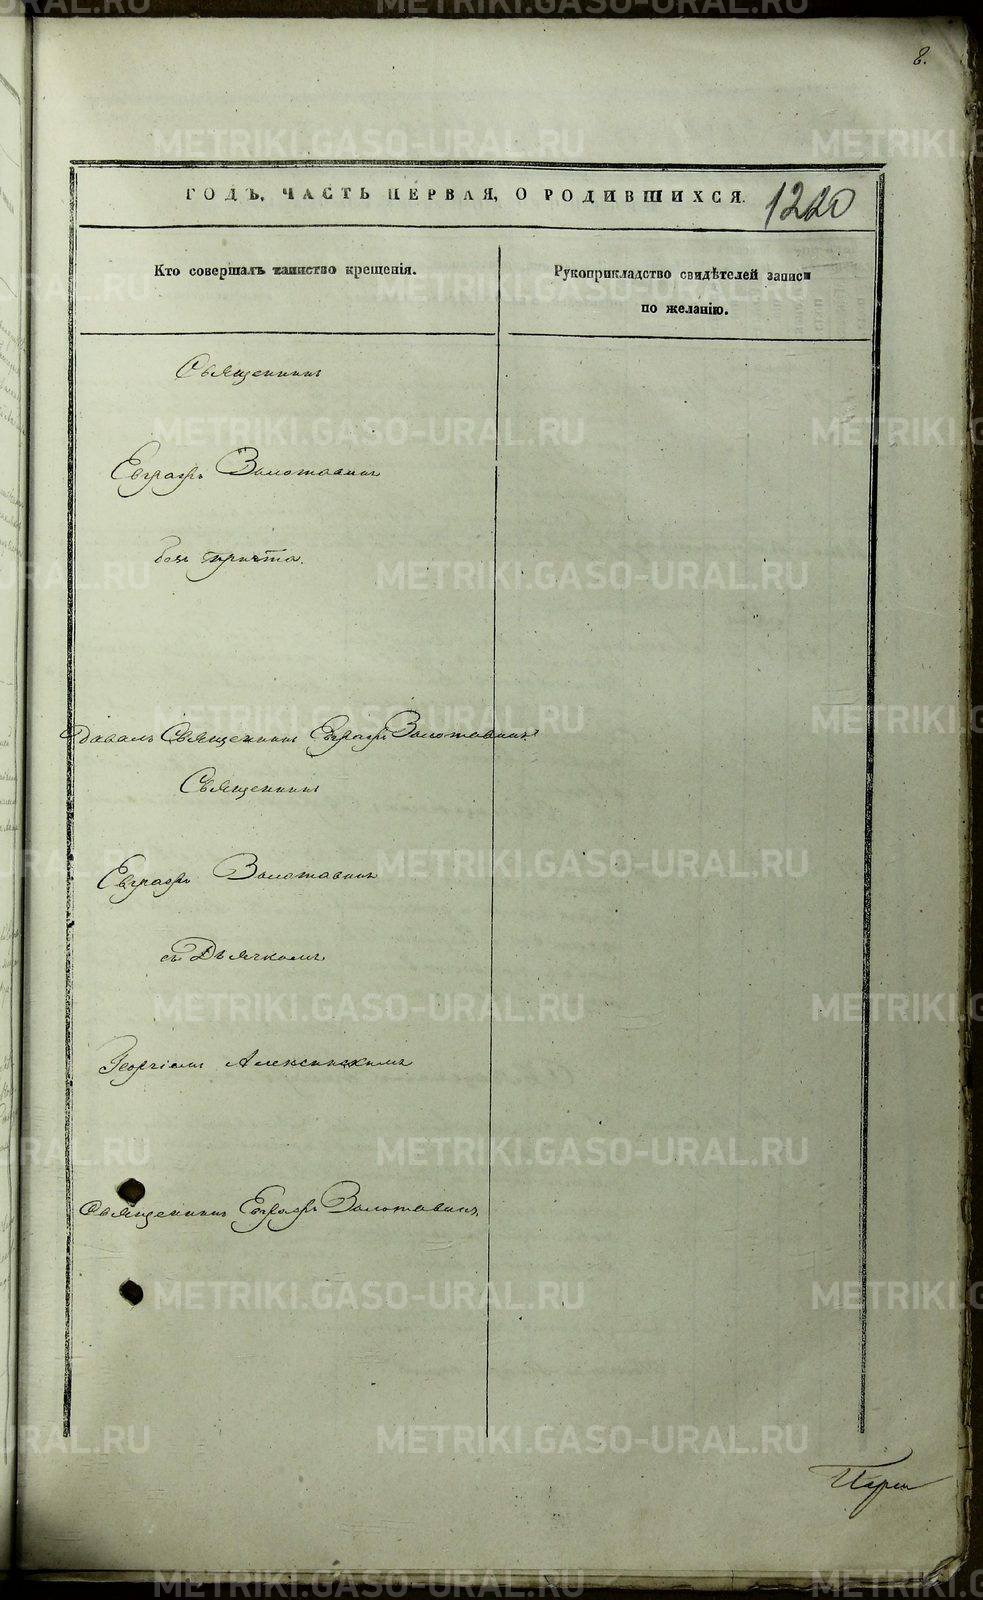 8.
ГОДЪ, ЧАСТЬ ПЕРВАЯ, О РОДИВШИХСЯ.
1220
Кто совершалъ таинство крещенія.
Рукоприкладство свидѣтелей записи
по желанію.
Священникъ
Евграфъ Золотавинъ
безъ причта.
давалъ Священникъ Евграфъ Золотавинъ
Священникъ
Евграфъ Золотавинъ
съ Дьячкомъ
Георгіемъ Алексинскимъ
Священникъ Евграфъ Золотавинъ
METRIKI.GASO-URAL.RU